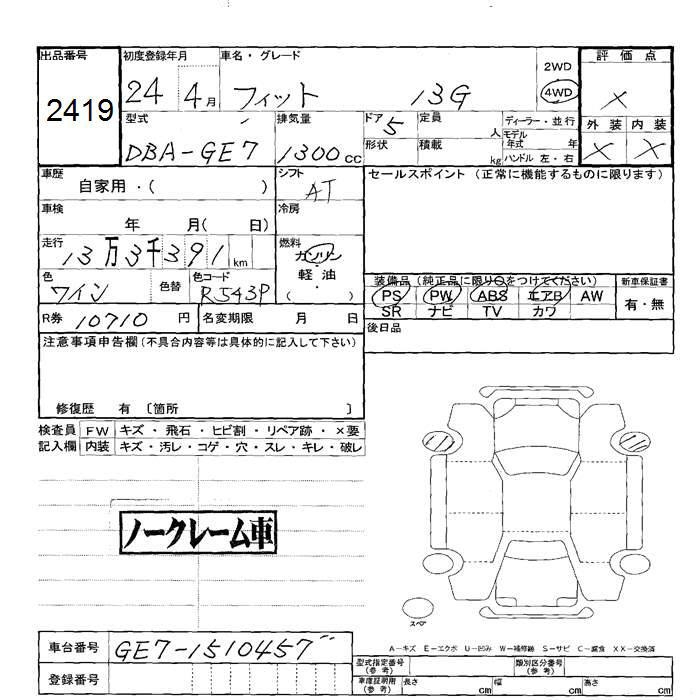 出品番号 初度登録年月 車名・グレード 2WD 評価点
2419 24 4月 フィット 13G 4WD ×
型式 排気量 ドア 5 定員 人 ディーラー・並行 外装 内装
DBA-GE7 1300cc 形状 積載 kg モデル年式 年 ハンドル 左・右 × ×
車歴 自家用・( ) シフト AT セールスポイント (正常に機能するものに限ります)
車検 年 月( 日) 冷房
走行 13万3千391km 燃料 ガソリン
軽・油
( )
色 ワイン 色替 色コード R543P
装備品 (純正品に限り○をつけてください) 新車保証書
PS PW ABS エアB AW 有・無
SR ナビ TV カワ
R券 10710 円 名変期限 月 日
後日品
注意事項申告欄(不具合内容等は具体的に記入して下さい)
修復歴 有 〔箇所 〕
検査員 FW キズ・飛石・ヒビ割・リペア跡・×要
記入欄 内装 キズ・汚レ・コゲ・穴・スレ・キレ・破レ
ノークレーム車
スペア
A-キズ E-エクボ U-凹み W-補修跡 S-サビ C-腐食 XX-交換済
車台番号 GE7-1510457
登録番号
型式指定番号(参考) 類別区分番号(参考)
車庫証明用(参考) 長さ cm 幅 cm 高さ cm